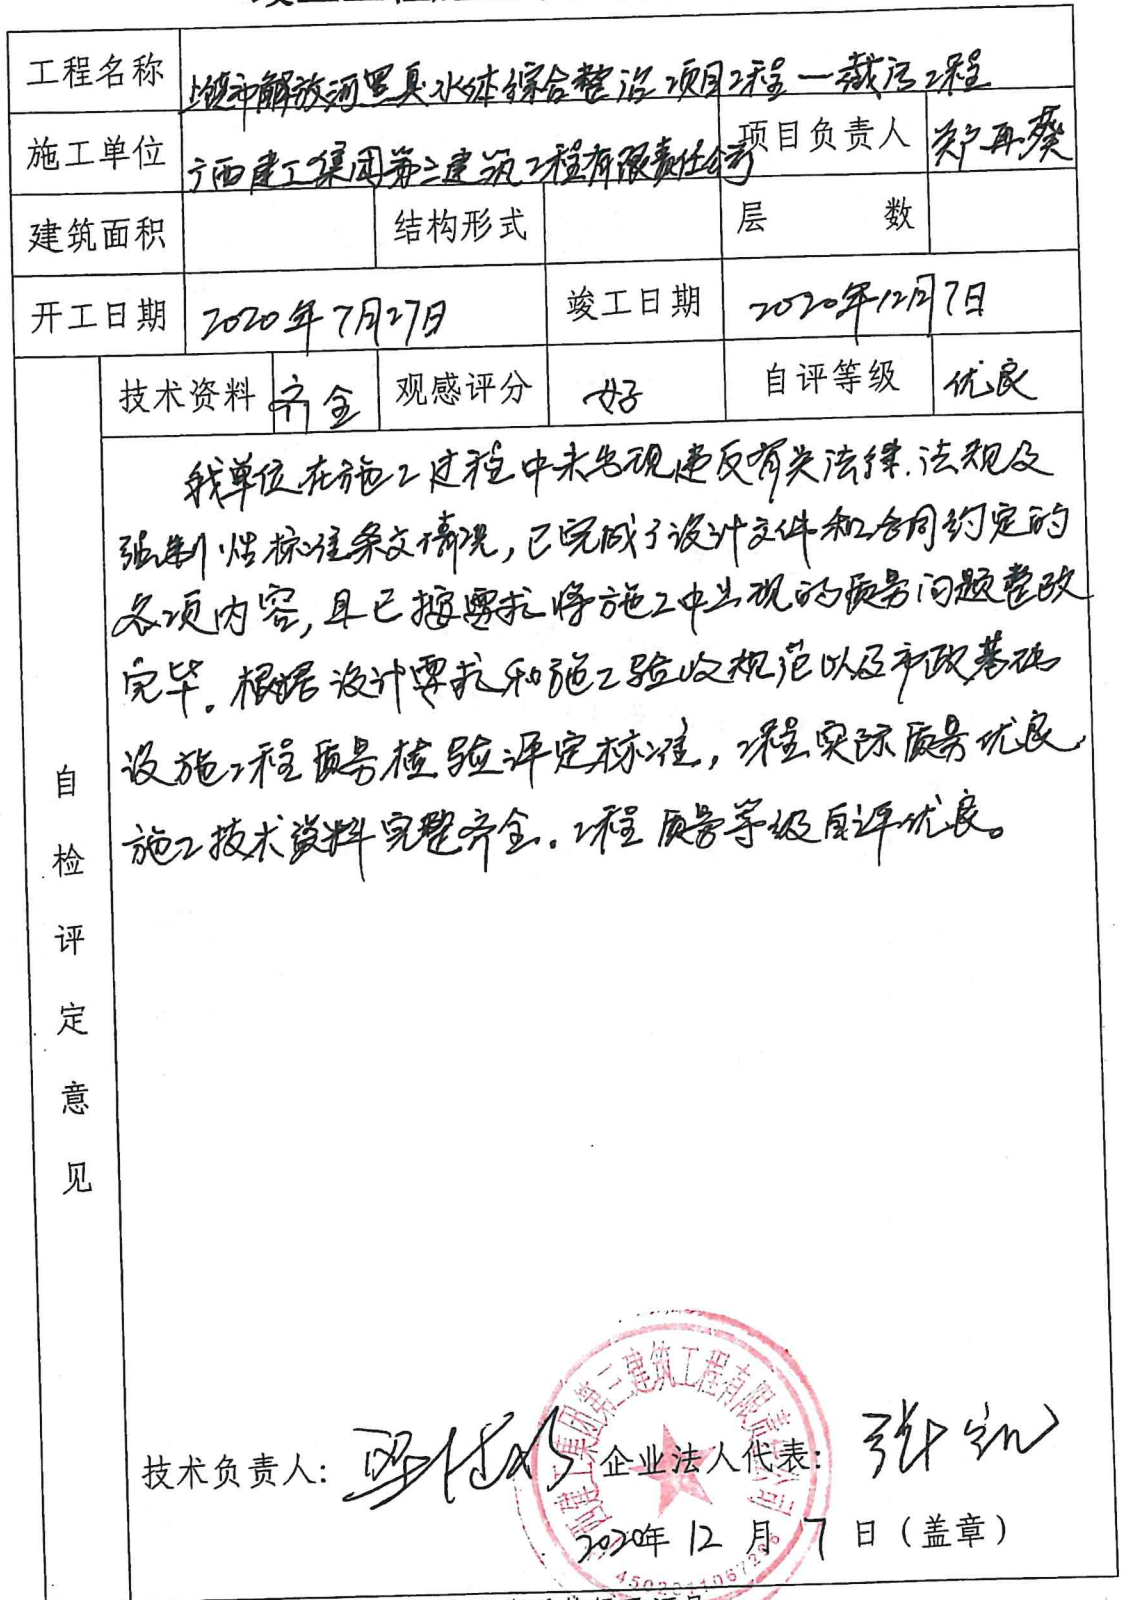 工程名称 解放河黑臭水体综合整治项目工程一截污工程
施工单位 广西建工集团第三建筑工程有限责任公司 项目负责人 郑再葵
建筑面积 结构形式 层 数
开工日期 2020年7月27日 竣工日期 2020年12月7日
技术资料 齐全 观感评分 好 自评等级 优良
我单位在施工过程中未出现违反有关法律.法规及
强制性标准条文情况,已完成了设计文件和合同约定的
各项内容,且已按要求将施工中出现的质量问题整改
完毕。根据设计要求和施工验收规范以及市政基础
设施工程质量检验评定标准,工程实际质量优良,
施工技术资料完整齐全。工程质量等级自评优良。
自检评定意见
广西建工集团第三建筑工程有限责任公司
技术负责人: 企业法人代表:
2020年12月7日(盖章)